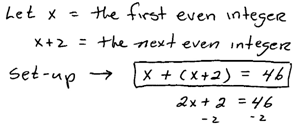 Let x = the first even integer
x+2 = the next even integer
Set-up → x + (x+2) = 46
2x + 2 = 46
-2 -2